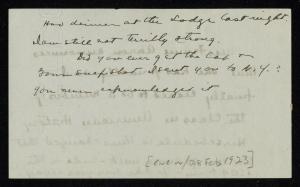 Had dinner at the Lodge last night.
I am still not thrilly strong.
Did you ever get the Cap or
Tom snapshot I sent you to N.Y.?
You never acknowledged it
[ENC W/28 FEB 1923]